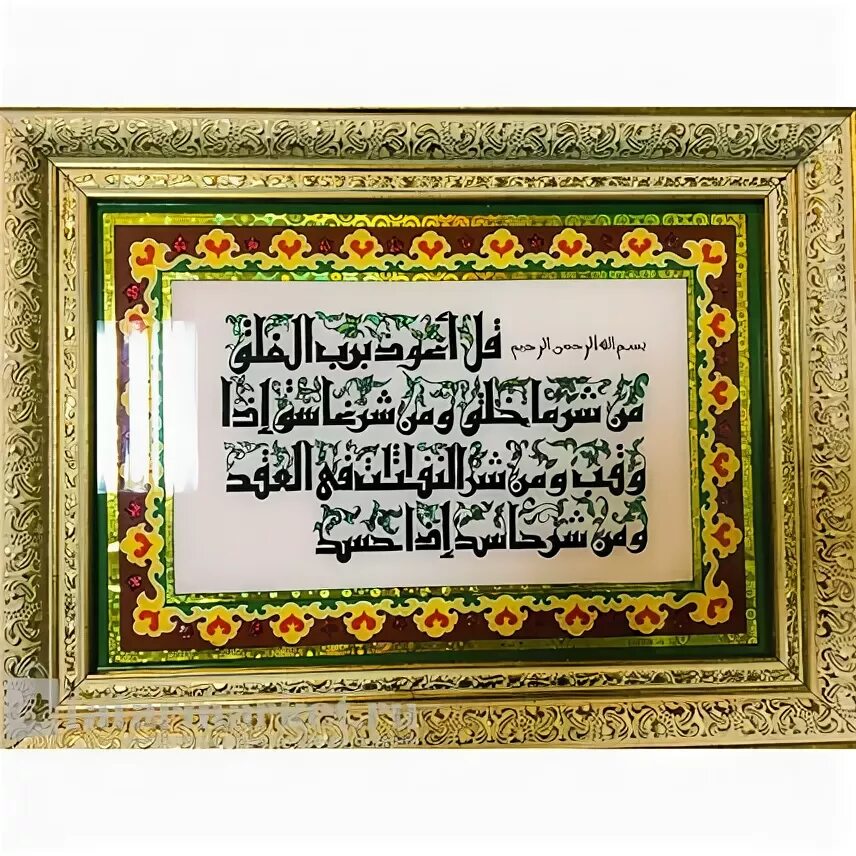 بسم الله الرحمن الرحيم قل أعوذ برب الفلق
من شر ما خلق ومن شر غاسق إذا
وقب ومن شر النفثت في العقد
ومن شر حاسد إذا حسد